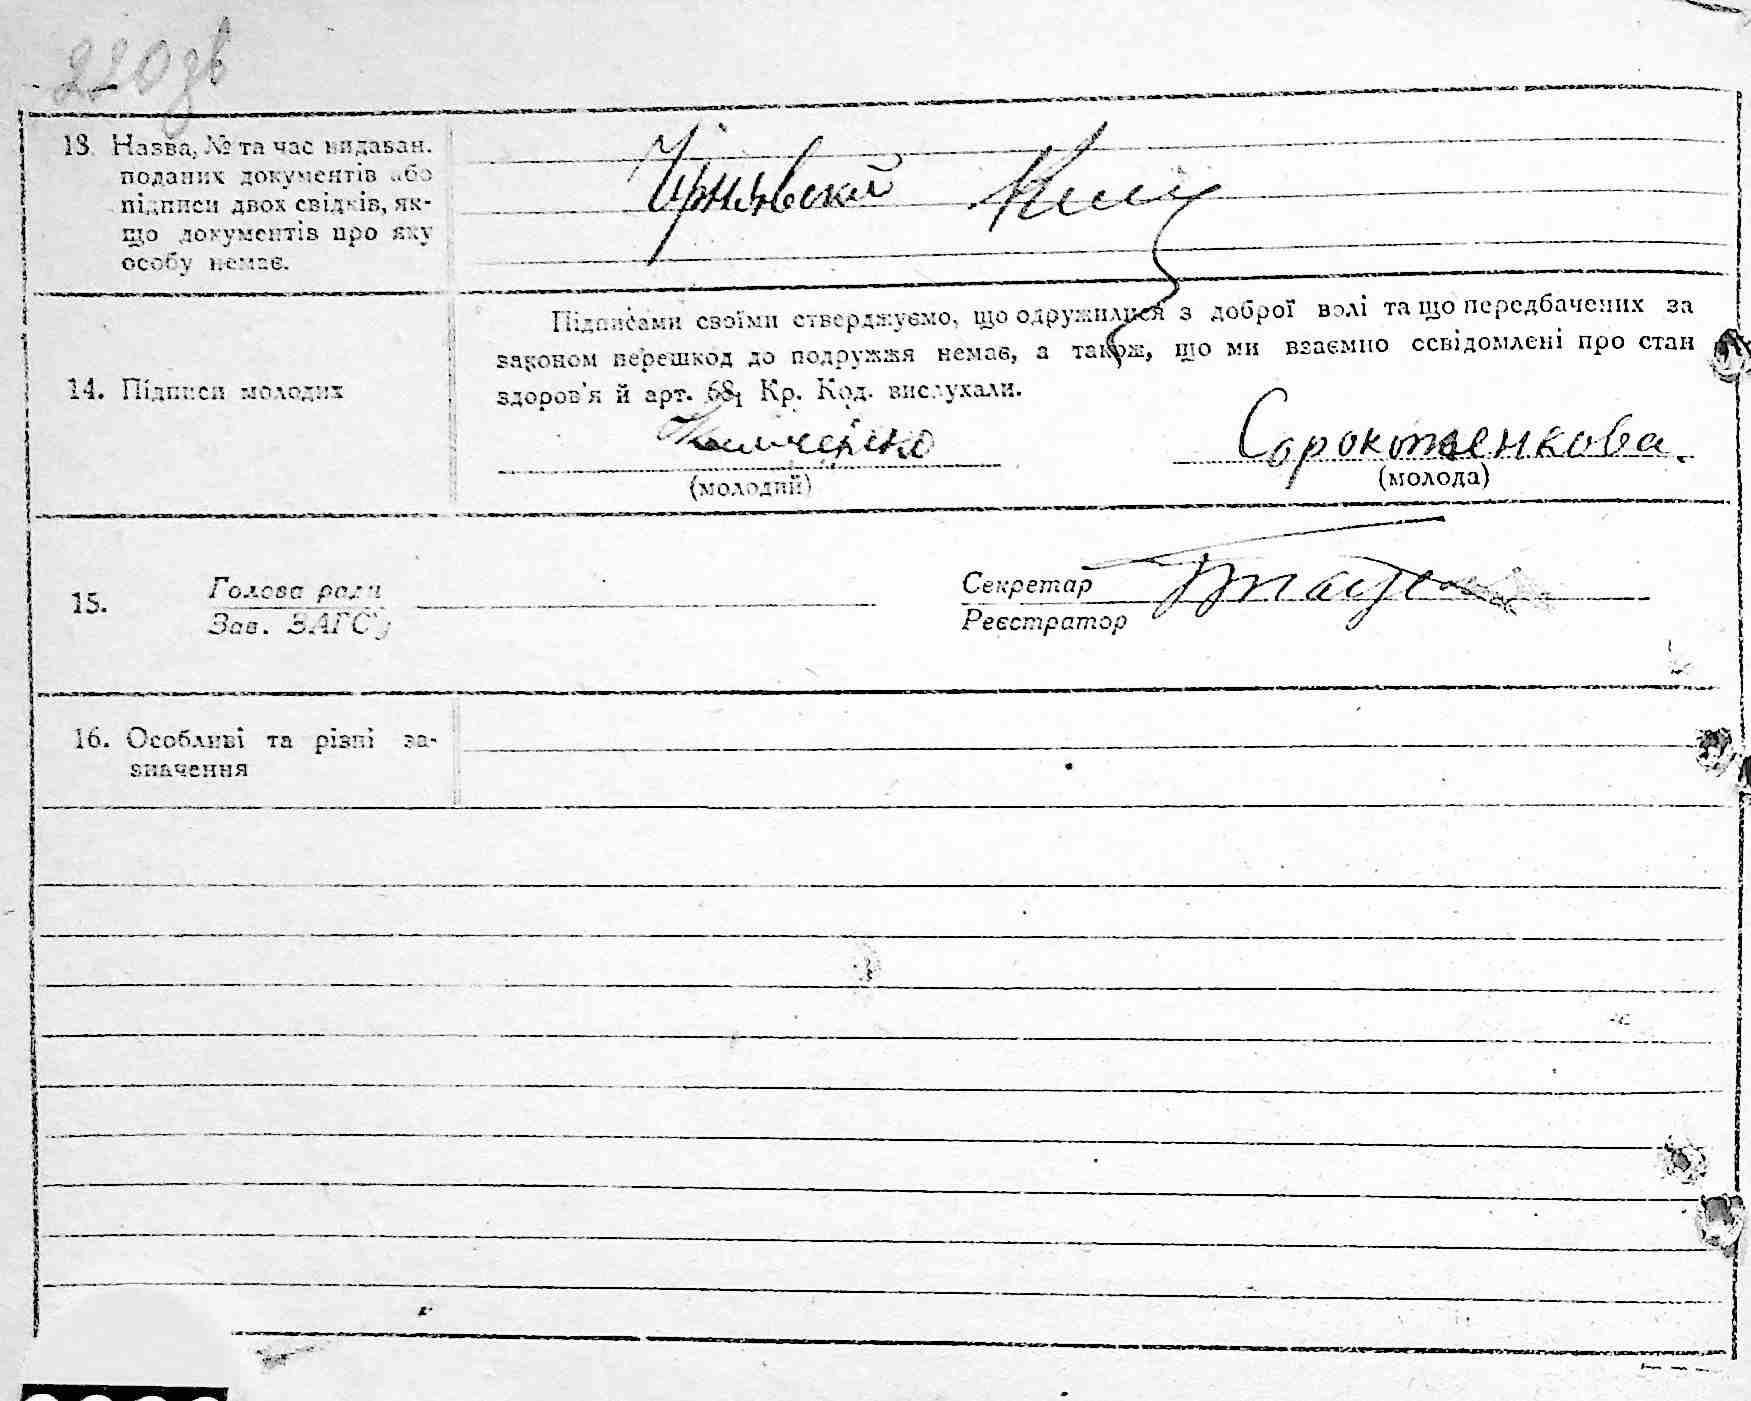 220зв
13. Назва, № та час видаван.
поданих документів або
підписи двох свідків, як-
що документів про яку
особу немає.
14. Підписи молодих
Підписами своїми стверджуємо, що одружилися з доброї волі та що передбачених за
законом перешкод до подружжя немає, а також, що ми взаємно освідомлені про стан
здоров'я й арт. 68₁ Кр. Код. вислухали.
Сорокотенкова.
(молодий) (молода)
15. Голова ради
Зав. ЗАГС'у
Секретар
Реєстратор
16. Особливі та різні за-
значення